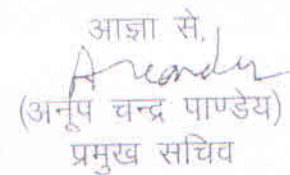 आज्ञा से,
(अनूप चन्द्र पाण्डेय)
प्रमुख सचिव